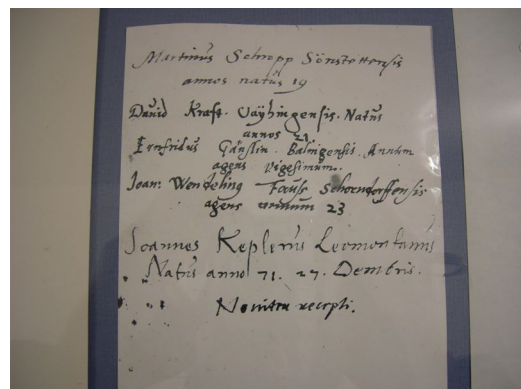 Martinus Schropp Sönstettensis
annos natus 19
David Kraft. Vayhingensis. Natus
annos 21
Gänslin. Balingensis. Annum
agens vigesimum.
Joan: Wendelinq Fauss Schorndorffensis
agens annum 23
Joannes Keplerus Leomontanus
Natus anno 71. 27. Decembris.
Noviter recepti.